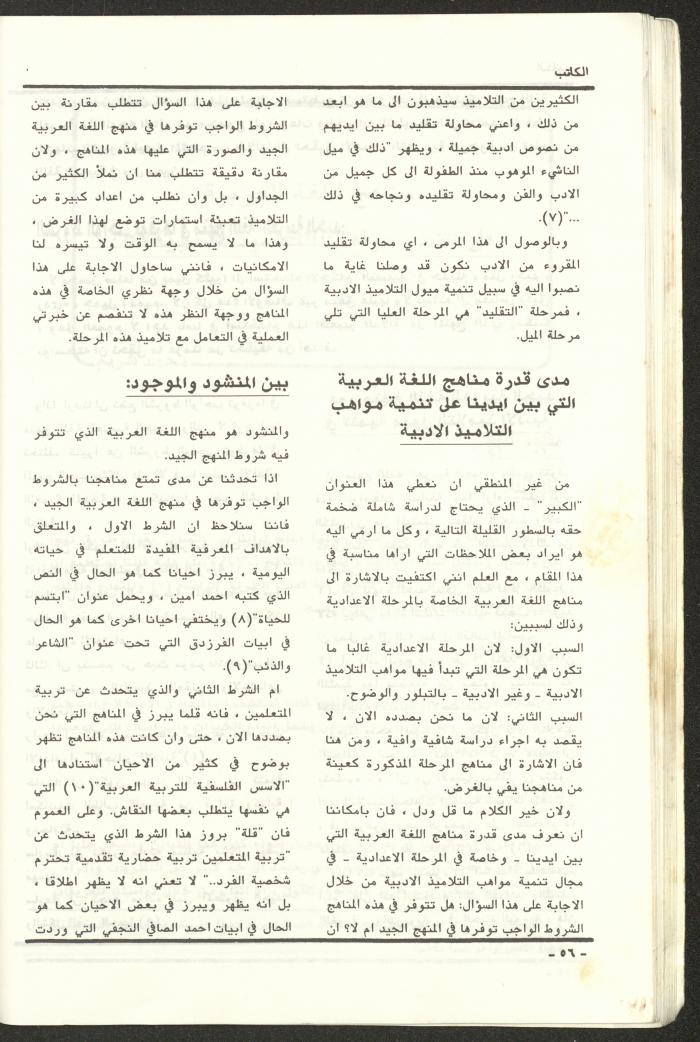 الكاتب
الكثيرين من التلاميذ سيذهبون الى ما هو ابعد
من ذلك ، واعني محاولة تقليد ما بين ايديهم
من نصوص ادبية جميلة ، ويظهر "ذلك في ميل
الناشيء الموهوب منذ الطفولة الى كل جميل من
الادب والفن ومحاولة تقليده ونجاحه في ذلك
..."(٧).
وبالوصول الى هذا المرمى ، اي محاولة تقليد
المقروء من الادب نكون قد وصلنا غاية ما
نصبوا اليه في سبيل تنمية ميول التلاميذ الادبية
، فمرحلة "التقليد" هي المرحلة العليا التي تلي
مرحلة الميل.
مدى قدرة مناهج اللغة العربية
التي بين ايدينا على تنمية مواهب
التلاميذ الادبية
من غير المنطقي ان نعطي هذا العنوان
"الكبير" ـ الذي يحتاج لدراسة شاملة ضخمة
حقه بالسطور القليلة التالية ، وكل ما ارمي اليه
هو ايراد بعض الملاحظات التي اراها مناسبة في
هذا المقام ، مع العلم انني اكتفيت بالاشارة الى
مناهج اللغة العربية الخاصة بالمرحلة الاعدادية
وذلك لسببين:
السبب الاول: لان المرحلة الاعدادية غالبا ما
تكون هي المرحلة التي تبدأ فيها مواهب التلاميذ
الادبية ـ وغير الادبية ـ بالتبلور والوضوح.
السبب الثاني: لان ما نحن بصدده الان ، لا
يقصد به اجراء دراسة شافية وافية ، ومن هنا
فان الاشارة الى مناهج المرحلة المذكورة كعينة
من مناهجنا يفي بالغرض.
ولان خير الكلام ما قل ودل ، فان بامكاننا
ان نعرف مدى قدرة مناهج اللغة العربية التي
بين ايدينا ـ وخاصة في المرحلة الاعدادية ـ في
مجال تنمية مواهب التلاميذ الادبية من خلال
الاجابة على هذا السؤال: هل تتوفر في هذه المناهج
الشروط الواجب توفرها في المنهج الجيد ام لا؟ ان
الاجابة على هذا السؤال تتطلب مقارنة بين
الشروط الواجب توفرها في منهج اللغة العربية
الجيد والصورة التي عليها هذه المناهج ، ولان
مقارنة دقيقة تتطلب منا ان نملأ الكثير من
الجداول ، بل وان نطلب من اعداد كبيرة من
التلاميذ تعبئة استمارات توضع لهذا الغرض ،
وهذا ما لا يسمح به الوقت ولا تيسره لنا
الامكانيات ، فانني ساحاول الاجابة على هذا
السؤال من خلال وجهة نظري الخاصة في هذه
المناهج ووجهة النظر هذه لا تنفصم عن خبرتي
العملية في التعامل مع تلاميذ هذه المرحلة.
بين المنشود والموجود:
والمنشود هو منهج اللغة العربية الذي تتوفر
فيه شروط المنهج الجيد.
اذا تحدثنا عن مدى تمتع مناهجنا بالشروط
الواجب توفرها في منهج اللغة العربية الجيد ،
فاننا سنلاحظ ان الشرط الاول ، والمتعلق
بالاهداف المعرفية المفيدة للمتعلم في حياته
اليومية ، يبرز احيانا كما هو الحال في النص
الذي كتبه احمد امين ، ويحمل عنوان "ابتسم
للحياة"(٨) ويختفي احيانا اخرى كما هو الحال
في ابيات الفرزدق التي تحت عنوان "الشاعر
والذئب"(٩).
ام الشرط الثاني والذي يتحدث عن تربية
المتعلمين ، فانه قلما يبرز في المناهج التي نحن
بصددها الان ، حتى وان كانت هذه المناهج تظهر
بوضوح في كثير من الاحيان استنادها الى
"الاسس الفلسفية للتربية العربية"(١٠) التي
هي نفسها يتطلب بعضها النقاش. وعلى العموم
فان "قلة" بروز هذا الشرط الذي يتحدث عن
"تربية المتعلمين تربية حضارية تقدمية تحترم
شخصية الفرد.." لا تعني انه لا يظهر اطلاقا ،
بل انه يظهر ويبرز في بعض الاحيان كما هو
الحال في ابيات احمد الصافي النجفي التي وردت
ـ ٥٦ ـ